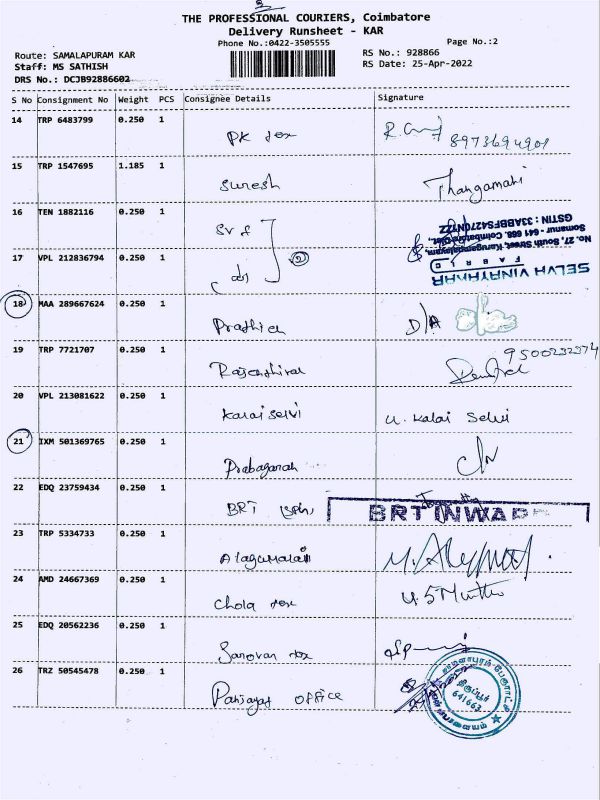 THE PROFESSIONAL COURIERS, Coimbatore
Delivery Runsheet - KAR
Phone No.:0422-3505555
Page No.:2
Route: SAMALAPURAM KAR
RS No.: 928866
Staff: MS SATHISH
RS Date: 25-Apr-2022
DRS No.: DCJB92886602
S No Consignment No Weight PCS Consignee Details Signature
14 TRP 6483799 0.250 1
PK tex
8973694901
15 TRP 1547695 1.185 1
Suresh Thangamani
16 TEN 1882116 0.250 1
SELVA VINAYAKAR
FABRIC
No. 27, South Street, Karugampalayam,
Somanur - 641 668. Coimbatore Dist.,
17 VPL 212836794 0.250 1
18 MAA 289667624 0.250 1
D/A
19 TRP 7721707 0.250 1
9500232374
20 VPL 213081622 0.250 1
Kalaiselvi U. Kalai Selvi
21 IXM 501369765 0.250 1
22 EDQ 23759434 0.250 1
BRT
BRT INWARD
23 TRP 5334733 0.250 1
24 AMD 24667369 0.250 1
Chola tex
25 EDQ 20562236 0.250 1
Sarovar tex
26 TRZ 50545478 0.250 1
OFFICE
திருப்பூர்
641663